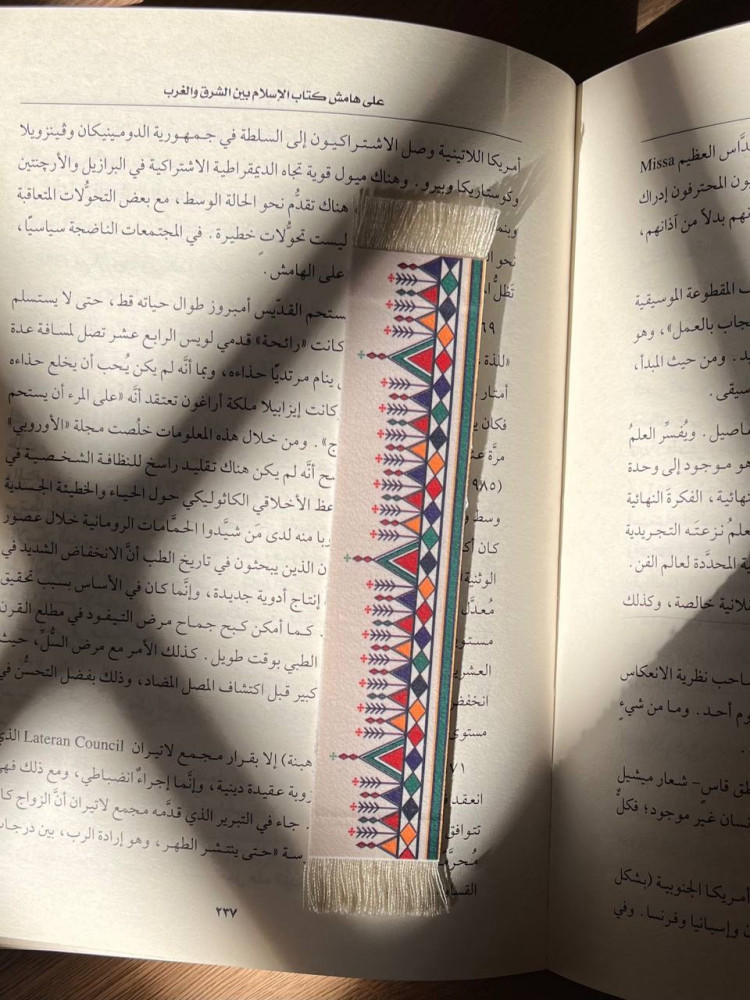 دَّاس العظيم Missa
ون المحترفون إدراك
هم بدلاً من آذانهم،
المقطوعة الموسيقية
جاب بالعمل»، وهو
د. ومن حيث المبدأ،
سيقى.
اصيل. ويُفسِّر العلمُ
هو موجود إلى وحدة
نهائية، الفكرةَ النهائية
علمُ نزعتَه التجريدية
ة المحدَّدة لعالم الفن.
لانية خالصة، وكذلك
صاحب نظرية الانعكاس
وم أحد. وما من شيءٍ
طق قاسٍ - شعار ميشيل
سان غير موجود؛ فكلُّ
أمريكا الجنوبية (بشكل
ن وإسبانيا وفرنسا. وفي
على هامش كتاب الإسلام بين الشرق والغرب
أمريكا اللاتينية وصل الاشتراكيون إلى السلطة في جمهورية الدومينيكان وڤنزويلا
وكوستاريكا وبيرو. وهناك ميول قوية تجاه الديمقراطية الاشتراكية في البرازيل والأرجنتين
هناك تقدُّم نحو الحالة الوسط، مع بعض التحوُّلات المتعاقبة
نحو ليست تحوُّلاتٍ خطيرة. في المجتمعات الناضجة سياسيًا،
تظلُّ على الهامش.
٦٩ ستحم القدّيس أمبروز طوال حياته قط، حتى لا يستسلم
«للذة كانت «رائحة» قدمي لويس الرابع عشر تصل لمسافة عدة
أمتار ينام مرتديًا حذاءه، وبما أنَّه لم يكن يُحب أن يخلع حذاءه
فكان كانت إيزابيلا ملكة أراغون تعتقد أنَّه «على المرء أن يستحم
مرَّة ج». ومن خلال هذه المعلومات خلُصت مجلة «الأوروبي»
(٩٨٥ أنَّه لم يكن هناك تقليد راسخ للنظافة الشخصية في
وسط عظ الأخلاقي الكاثوليكي حول الحياء والخطيئة الجسدية
كان منه لدى مَن شيَّدوا الحمَّامات الرومانية خلال عصور
الوثنية الذين يبحثون في تاريخ الطب أنَّ الانخفاض الشديد في
مُعدَّل إنتاج أدوية جديدة، وإنَّما كان في الأساس بسبب تحقيق
مستوى كما أمكن كبح جماح مرض التيفود في مطلع القرن
العشرين الطبي بوقت طويل. كذلك الأمر مع مرض السُّلِّ، حيث
انخفض كبير قبل اكتشاف المصل المضاد، وذلك بفضل التحسُّن في
مستوى
٧١ هبنة) إلا بقرار مجمع لاتيران Lateran Council الذي
انعقد روية عقيدة دينية، وإنَّما إجراءٌ انضباطي، ومع ذلك فهي
تتوافق جاء في التبرير الذي قدَّمه مجمع لاتيران أنَّ الزواج
مُحرَّم سة «حتى ينتشر الطهر، وهو إرادة الرب، بين درجات
٢٣٧